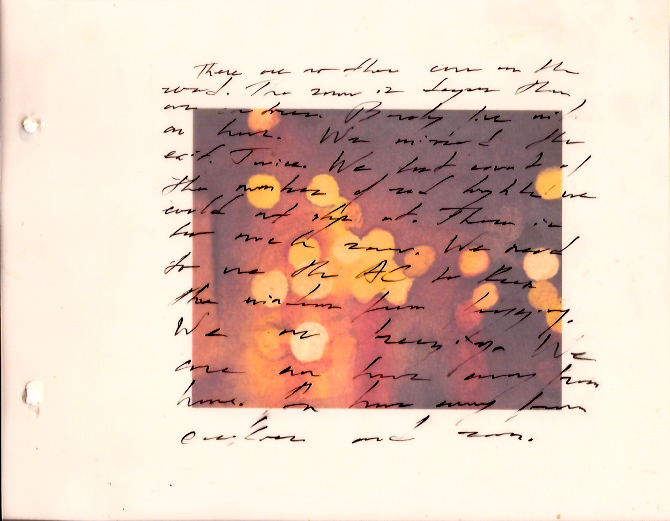 There are no other cars on the
road. The snow is deeper than
Barely
an hour. We missed the
exit. Twice. We lost count of
the number of red lights we
could not stop at. There is
too much snow. We need
to use the AC to keep
the windows from fogging.
We are freezing. We
are an hour away from
home. An hour away from
and snow.